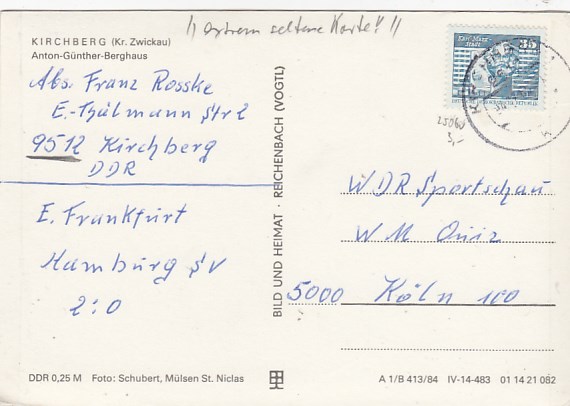 !! extrem seltene Karte!! !!
KIRCHBERG (Kr. Zwickau)
Anton-Günther-Berghaus
Abs. Franz Rosske
E.-Thälmann Str 2
9512 Kirchberg
DDR
E. Frankfurt
Hamburg SV
2:0
BILD UND HEIMAT · REICHENBACH (VOGTL)
Karl-Marx-Stadt
35
25060
3,-
WDR Sportschau
WM Quiz
5000 Köln 100
DDR 0,25 M Foto: Schubert, Mülsen St. Niclas
A 1/B 413/84 IV-14-483 01 14 21 082